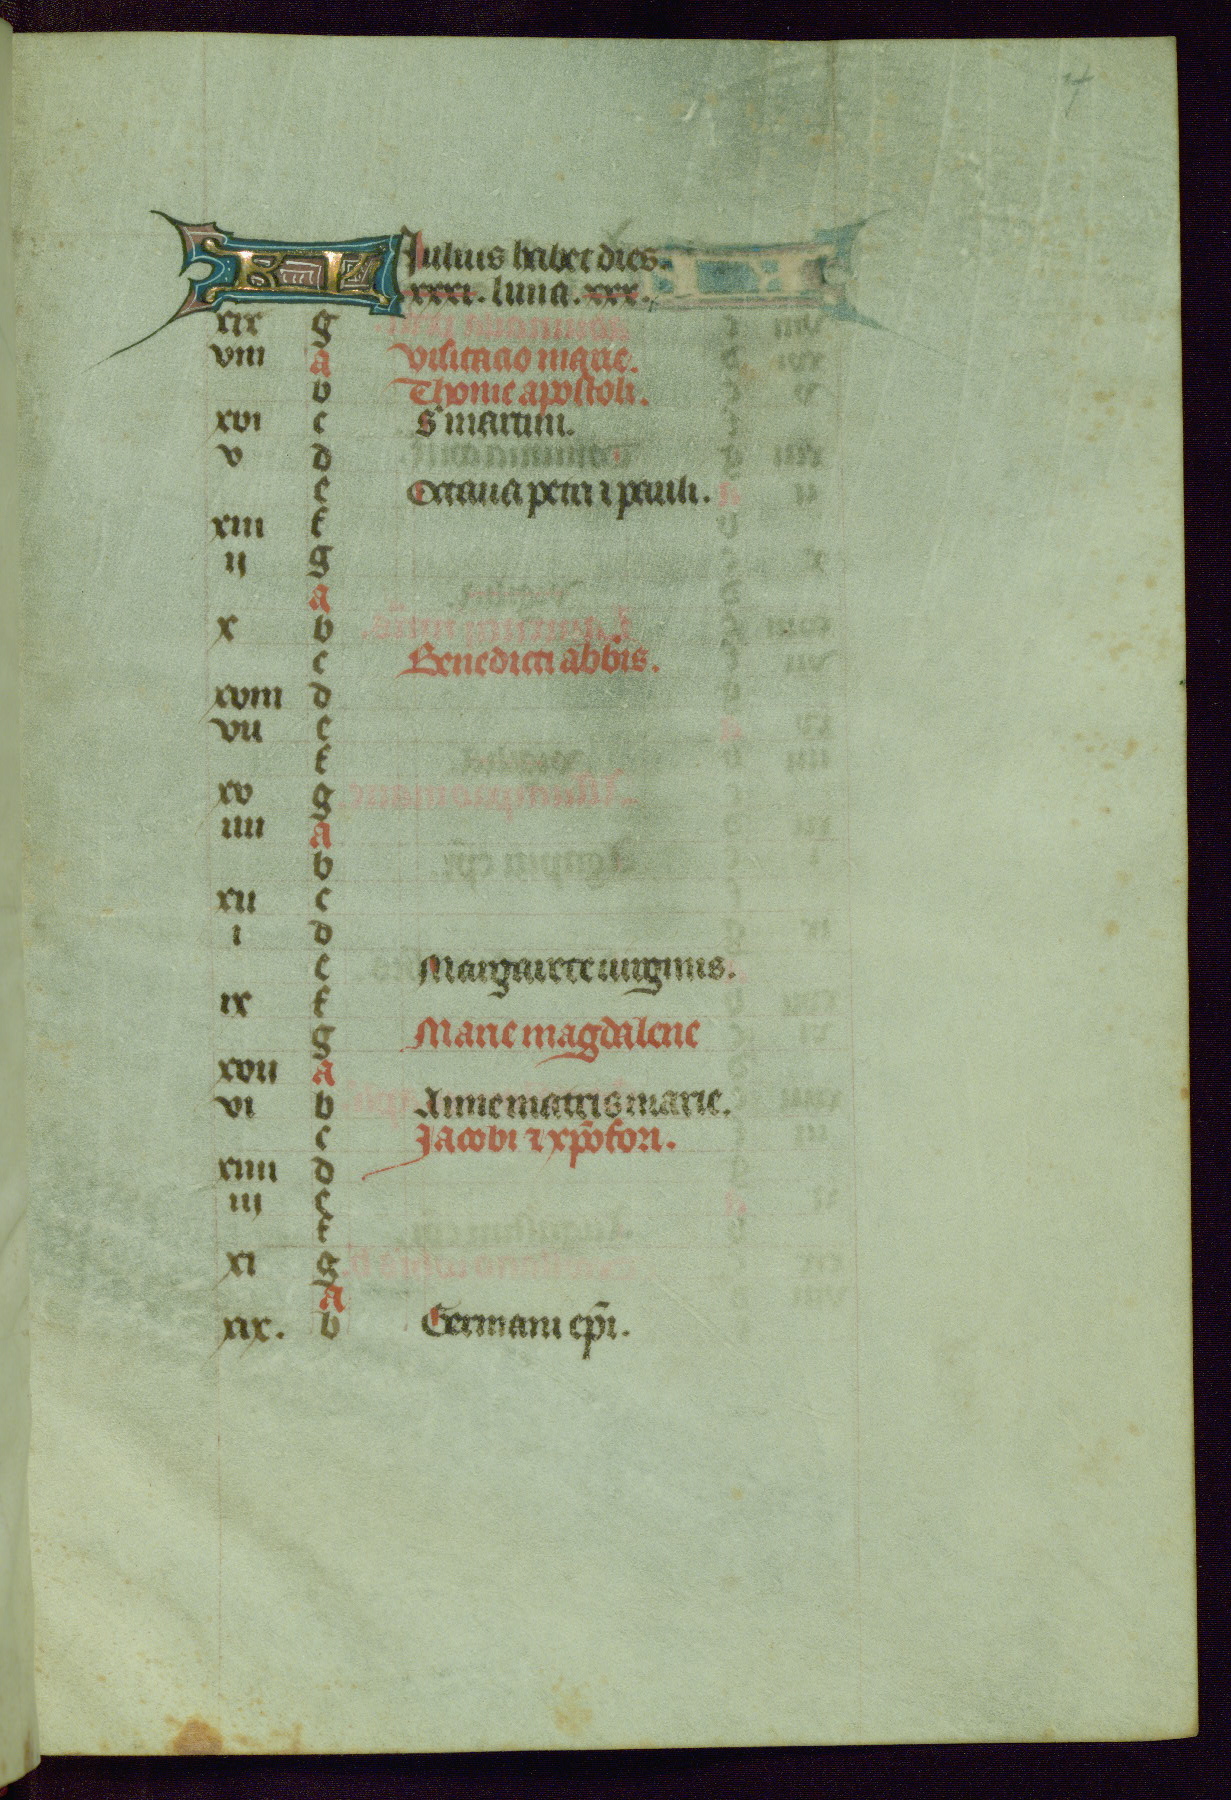 7
KL Julius habet dies.
xxxi. luna. xxx.
xix g
viii a Visitatio marie.
b Thome apostoli.
xvi c S martini.
v d
e Octaua petri ⁊ pauli.
xiii f
ij g
a
x b
c Benedicti abb̄is.
xviii d
vii e
f
xv g
iiii a
b
xii c
i d
e Margarete uirginis.
ix f
g Marie magdalene
xvii a
vi b Anne matris marie.
c Jacobi ⁊ xp̄ofori.
xiiii d
iij e
f
xi g
a
xix. b Germani ep̄i.